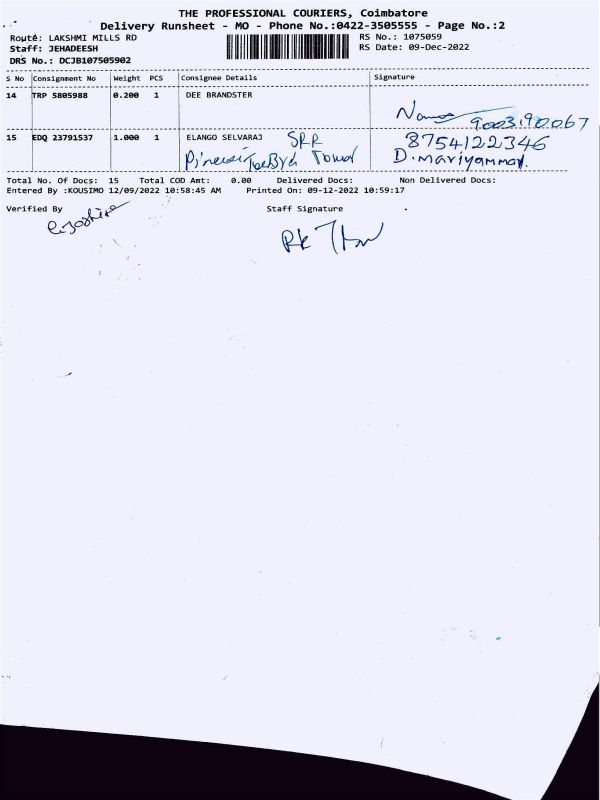 THE PROFESSIONAL COURIERS, Coimbatore
Delivery Runsheet - MO - Phone No.:0422-3505555 - Page No.:2
Route: LAKSHMI MILLS RD
RS No.: 1075059
Staff: JEHADEESH
RS Date: 09-Dec-2022
DRS No.: DCJB107505902
S No Consignment No Weight PCS Consignee Details Signature
14 TRP 5805988 0.200 1 DEE BRANDSTER
9003190067
15 EDQ 23791537 1.000 1 ELANGO SELVARAJ SRR 8754122346
D.mariyammal
Total No. Of Docs: 15 Total COD Amt: 0.00 Delivered Docs: Non Delivered Docs:
Entered By :KOUSIMO 12/09/2022 10:58:45 AM Printed On: 09-12-2022 10:59:17
Verified By Staff Signature